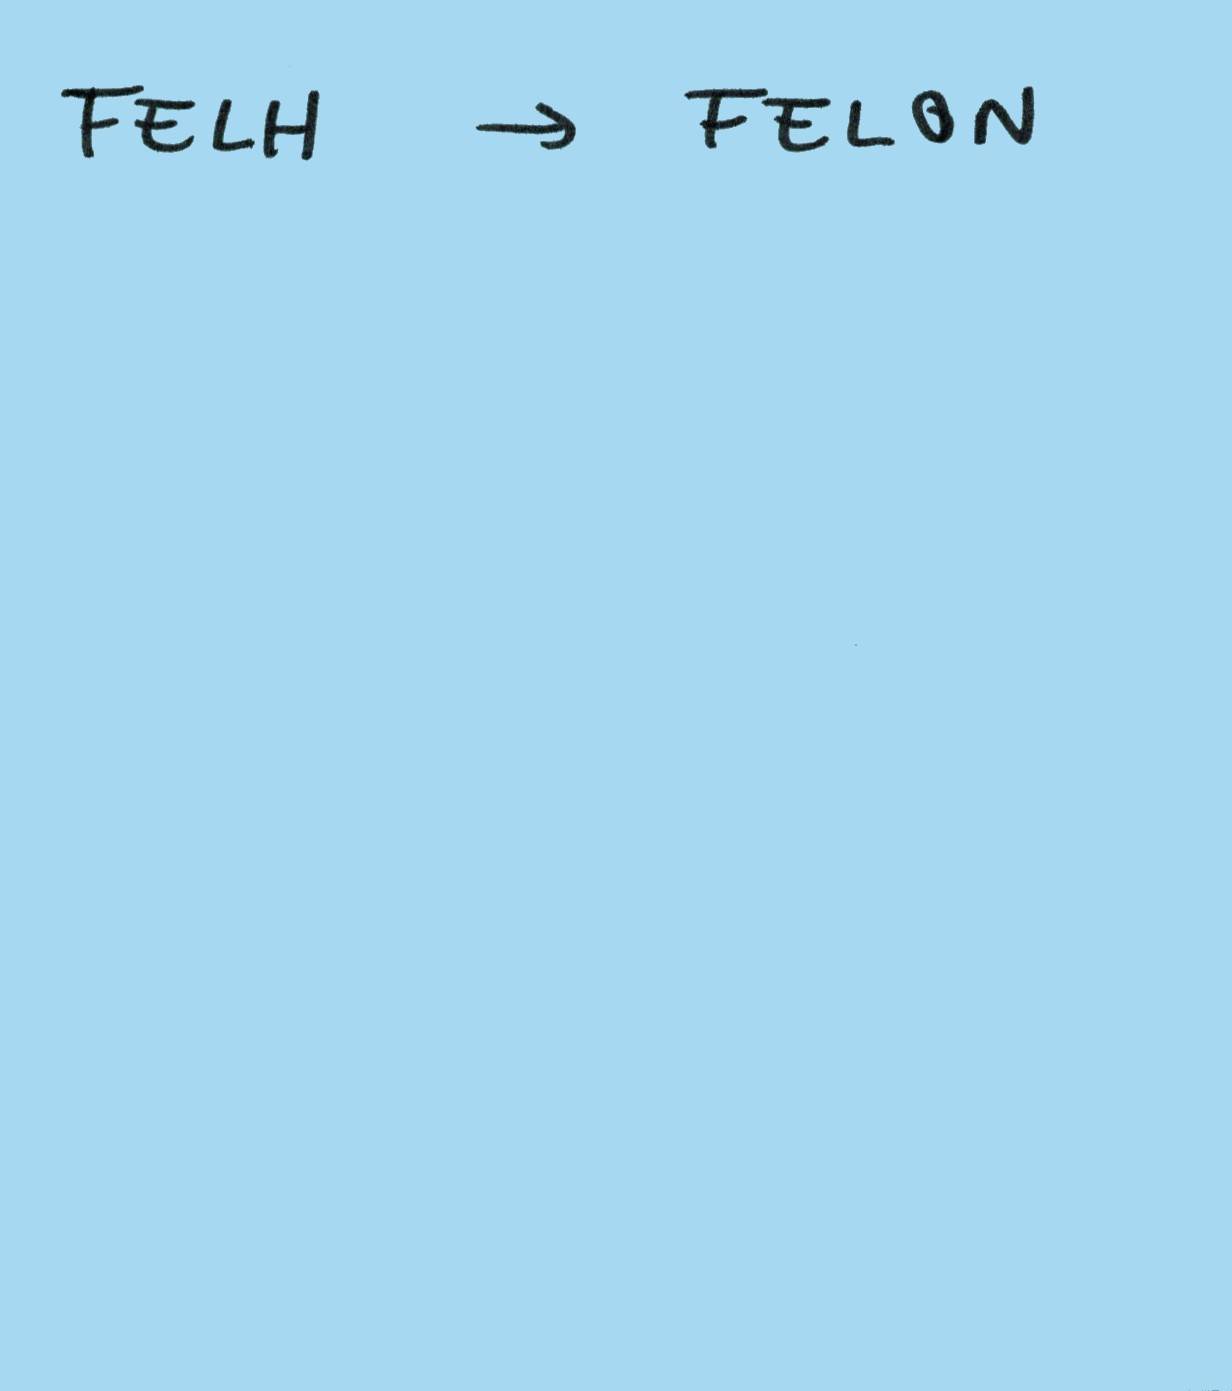 FELH → FELON